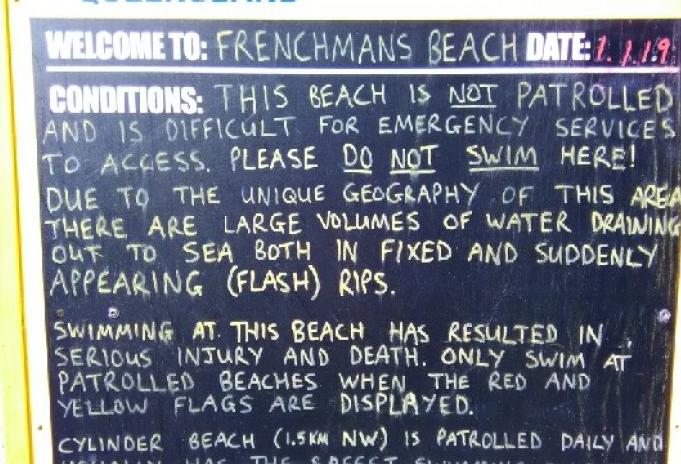 WELCOME TO: FRENCHMANS BEACH DATE: 1.1.19
CONDITIONS: THIS BEACH IS NOT PATROLLED
AND IS DIFFICULT FOR EMERGENCY SERVICES
TO ACCESS. PLEASE DO NOT SWIM HERE!
DUE TO THE UNIQUE GEOGRAPHY OF THIS AREA
THERE ARE LARGE VOLUMES OF WATER DRAINING
OUT TO SEA BOTH IN FIXED AND SUDDENLY
APPEARING (FLASH) RIPS.
SWIMMING AT THIS BEACH HAS RESULTED IN
SERIOUS INJURY AND DEATH. ONLY SWIM AT
PATROLLED BEACHES WHEN THE RED AND
YELLOW FLAGS ARE DISPLAYED.
CYLINDER BEACH (1.5KM NW) IS PATROLLED DAILY AND
USUALLY HAS THE SAFEST SWIMMING